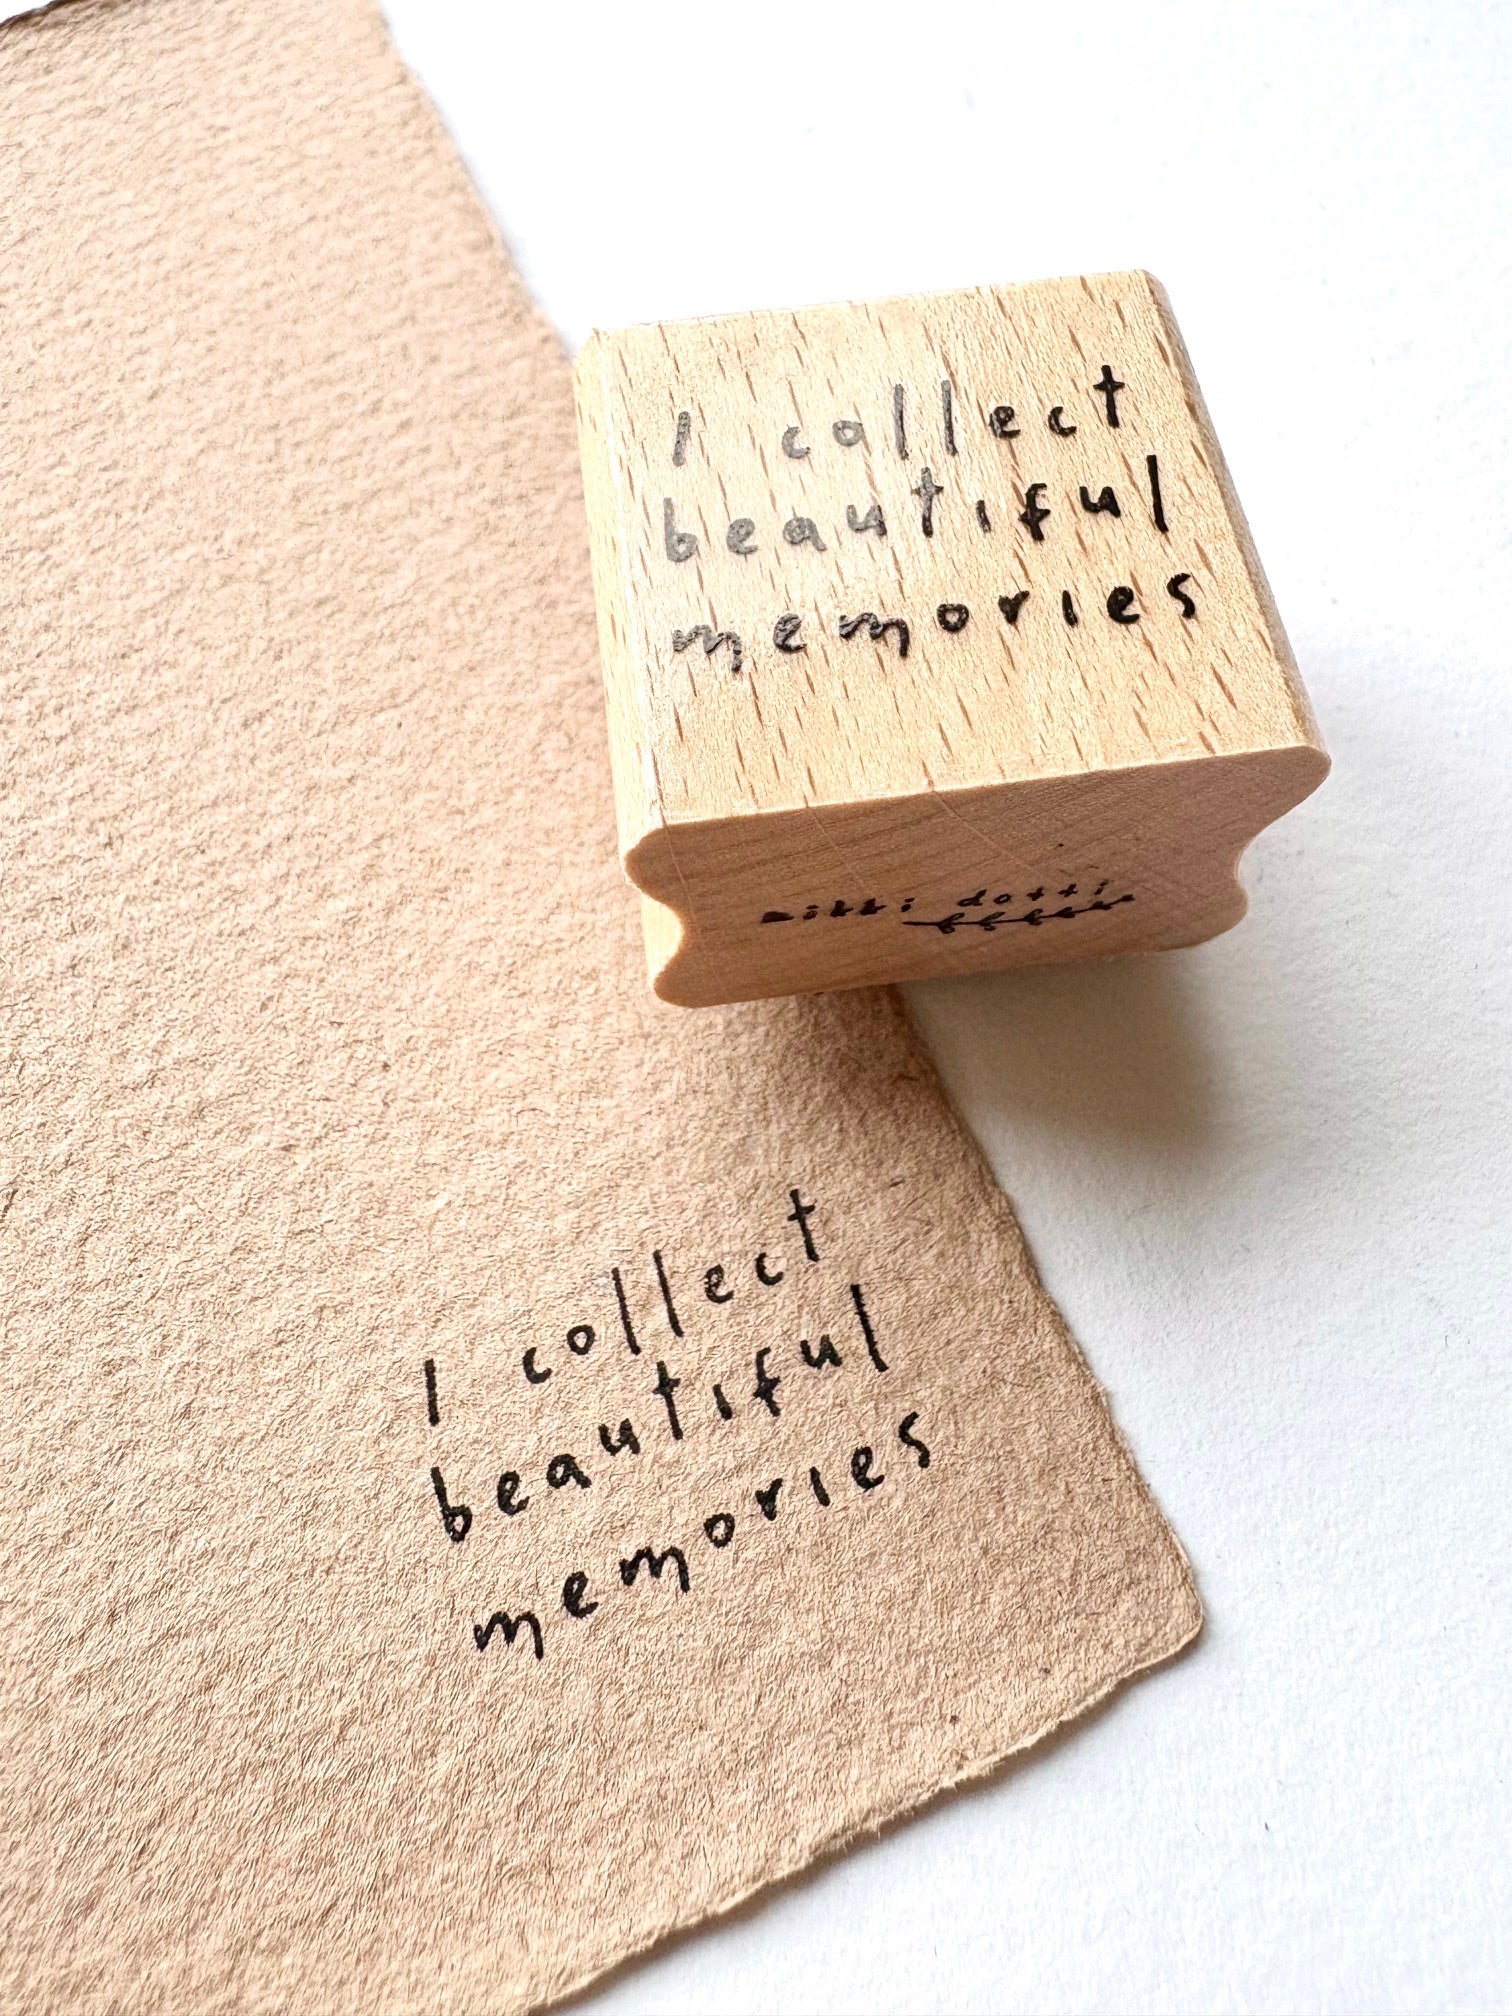 I collect
beautiful
memories
mikki dotti
I collect
beautiful
memories